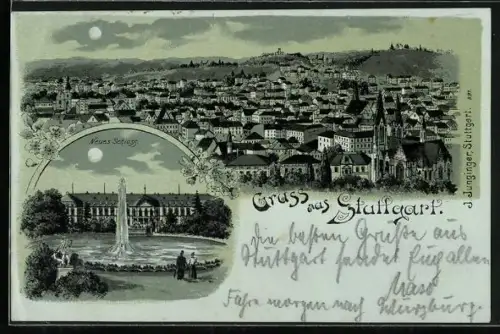 Neues Schloss
Gruss aus Stuttgart.
J. Junginger, Stuttgart.
Die besten Grüße aus
Stuttgart sendet Euch allen
Fahre morgen nach Würzburg.